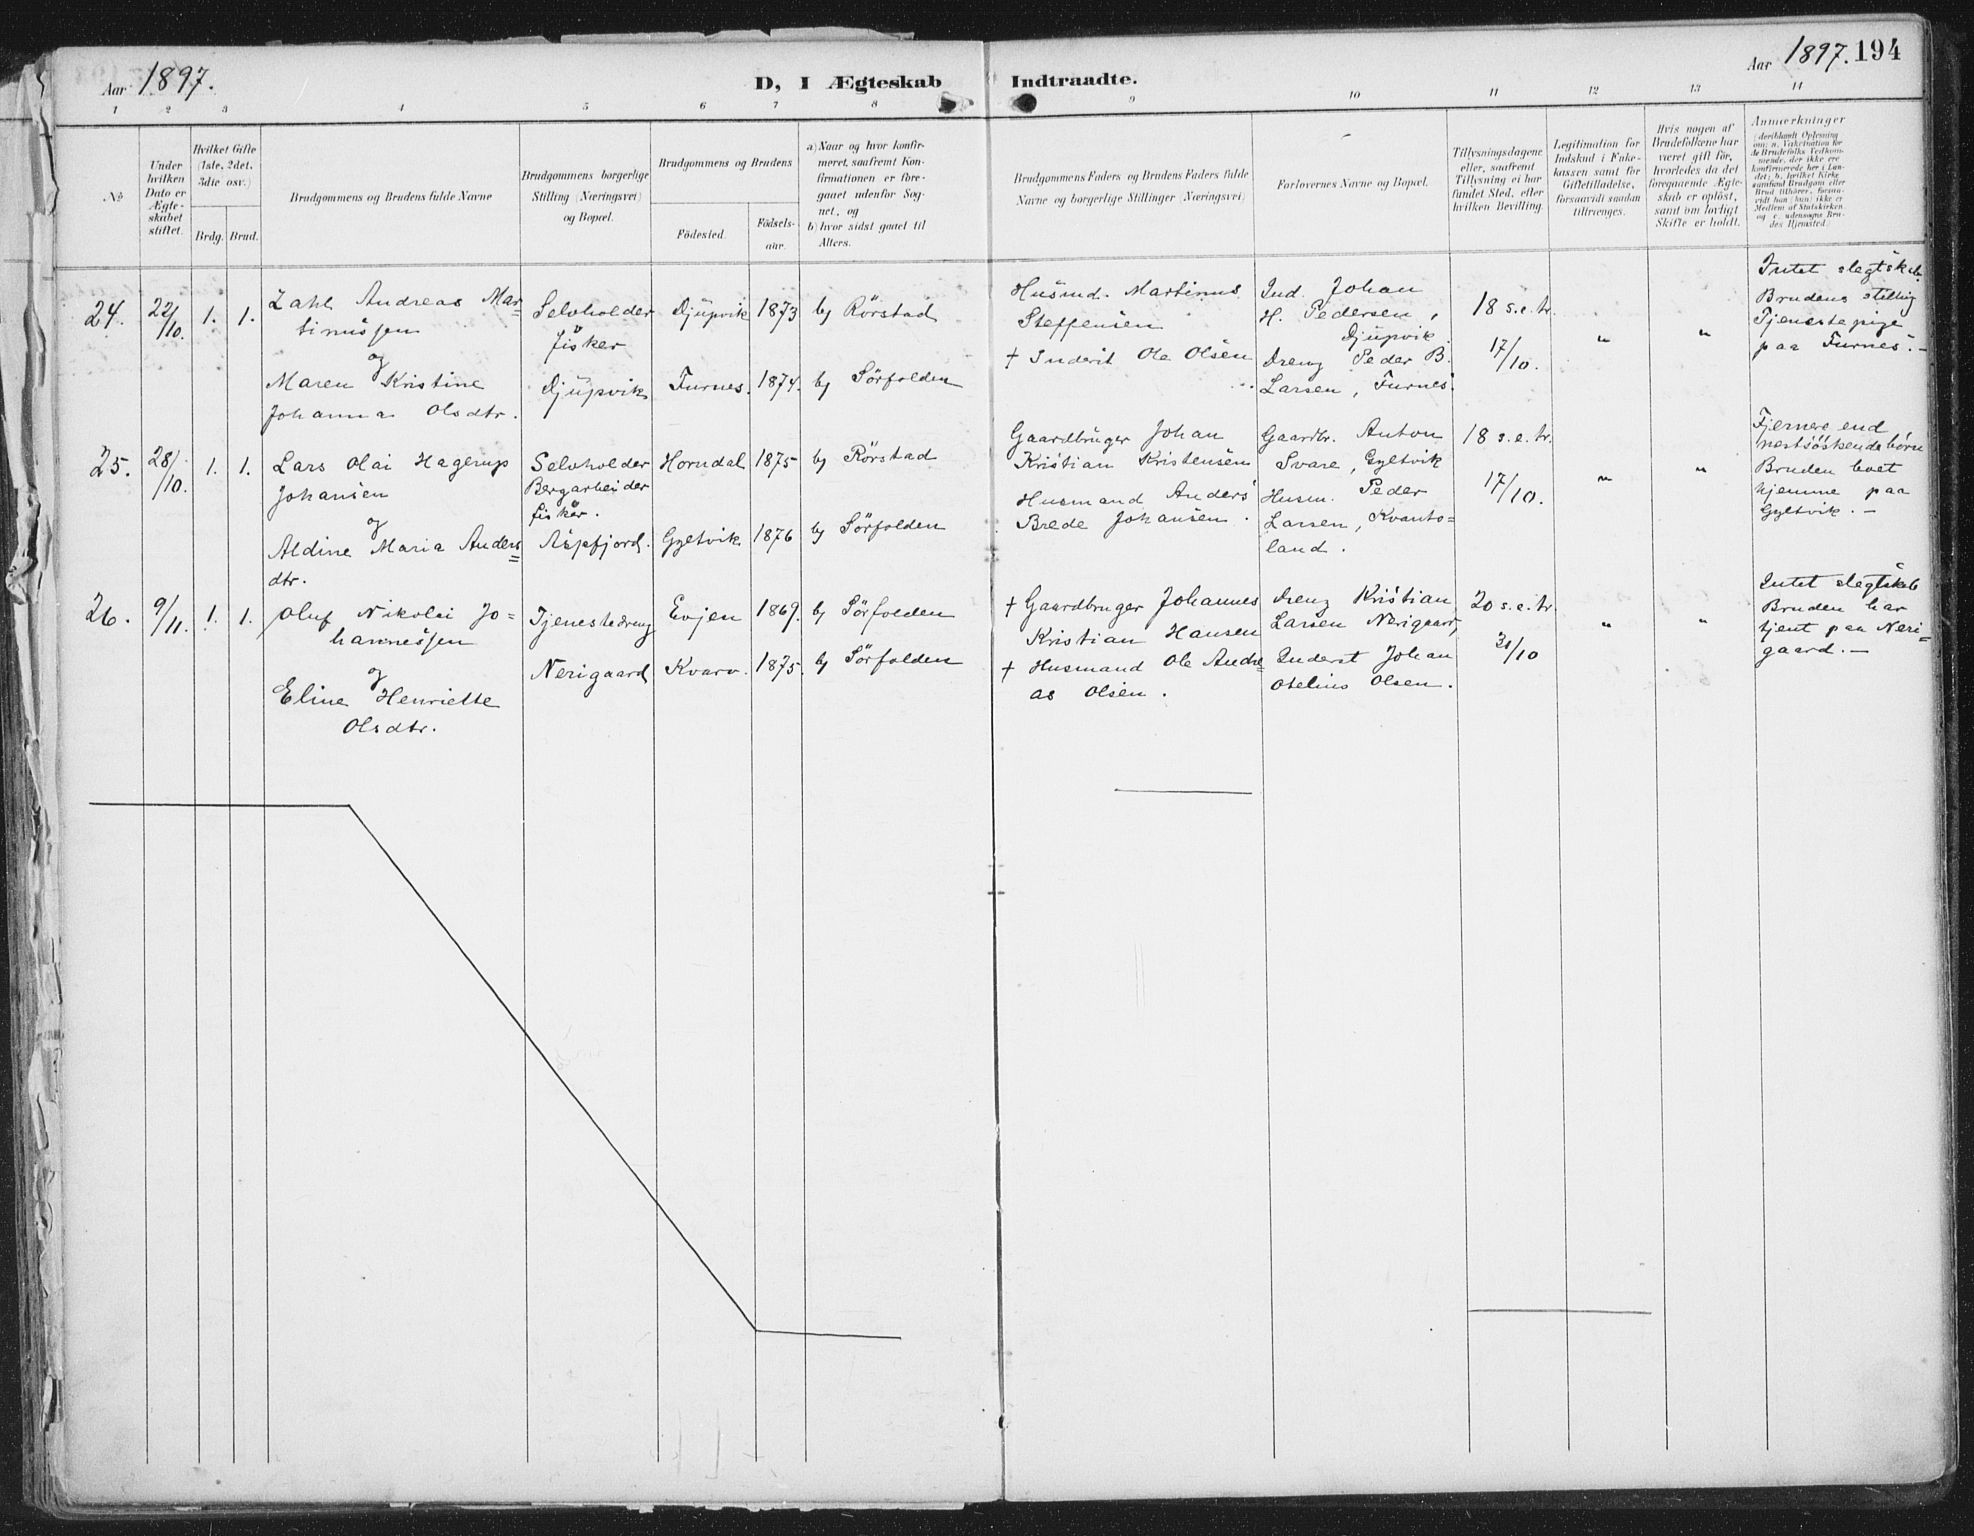 Aar 1897.
D, I Ægteskab Indtraadte.
Aar 1897. 194
1 2 3 4 5 6 7 8 9 10 11 12 13 14
No
Under
hvilken
Dato er
Ægte-
skabet
stiftet.
Hvilket Gifte
(1ste, 2det,
3die osv.)
Brdg. Brud.
Brudgommens og Brudens fulde Navne
Brudgommens borgerlige
Stilling (Næringsvei)
og Bopæl.
Brudgommens og Brudens
Födested.
Födsels-
aar.
a) Naar og hvor konfir-
meret, saafremt Kon-
firmationen er fore-
gaaet udenfor Sog-
net, og
b) hvor sidst gaaet til
Alters.
Brudgommens Faders og Brudens Faders fulde
Navne og borgerlige Stillinger (Næringsvei)
Forlovernes Navne og Bopæl.
Tillysningsdagene
eller, saafremt
Tillysning ei har
fundet Sted, efter
hvilken Bevilling.
Legitimation for
Indskud i Enke-
kassen samt for
Giftetilladelse,
forsaavidt saadan
tiltrænges.
Hvis nogen af
Brudefolkene har
været gift för,
hvorledes da det
foregaaende Ægte-
skab er oplöst,
samt om lovligt
Skifte er holdt.
Anmærkninger
(deriblandt Oplysning
om: a. Vakcination for
de Brudefolks Vedkom-
mende, der ikke ere
konfirmerede her i Lan-
det; b. hvilket Kirke-
samfund Brudgom eller
Brud tilhörer, forsaa-
vidt han (hun) ikke er
Medlem af Statskirken,
og c. udensogns Bru-
des Hjemsted.)
24. 22/10. 1. 1.
Zahl Andreas Mar-
tinussen
og
Maren Kristine
Johanna Olsdtr.
Selvholder
fisker
Djupvik
Djupvik 1873 b) Rörstad
Furnes. 1874. b) Sörfolden
Husmd. Martinus
Steffensen
+ Inderst Ole Olsen
Ind. Johan
H. Pedersen,
Djupvik.
Dreng Peder B.
Larsen, Furnes.
18 s. e. tr.
17/10.
" "
Intet slegtskab.
Brudens stilling
Tjenestepige
paa Furnes. –
25. 28/10. 1. 1.
Lars Olai Hagerup
Johansen
og
Aldine Maria Anders=
dtr.
Selvholder
Bergarbeider
fisker.
Aspfjord.
Horndal 1875 b) Rörstad
Gyltvik 1876 b) Sörfolden
Gaardbruger Johan
Kristian Kristensen
Husmand Anders
Brede Johansen.
Gaardbr. Anton
Svare, Gyltvik
Husm. Peder
Larsen, Kvanto=
land.
18 s. e. tr.
17/10.
" "
Fjernere end
nestsöskendebörn
Bruden boet
hjemme paa
Gyltvik. –
26. 9/11. 1. 1.
Oluf Nikolai Jo=
hannessen
og
Eline Henriette
Olsdtr.
Tjenestedreng
Nerigaard
Evjen 1869. b) Sörfolden
Kvarv. 1875. b) Sörfolden
+ Gaardbruger Johannes
Kristian Hansen
+ Husmand Ole Andre=
as Olsen.
Dreng Kristian
Larsen Nerigaard,
Inderst Johan
Otelius Olsen.
20 s. e. tr.
31/10
" "
Intet slegtskab
Bruden har
tjent paa Neri=
gaard. –